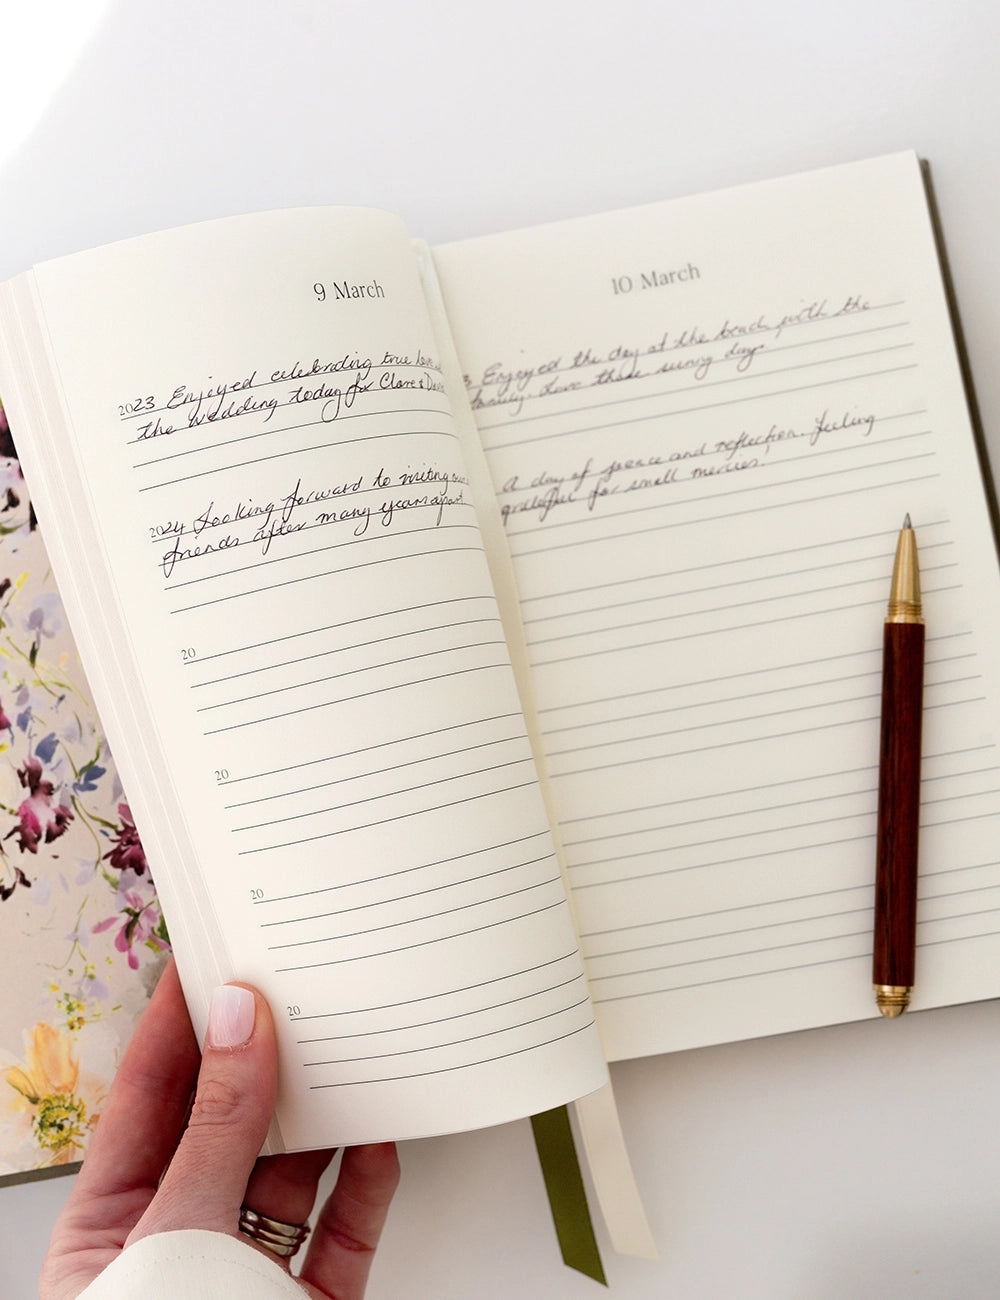 9 March
2023 Enjoyed celebrating true love
the wedding today for Clare &
2024 Looking forward to visiting our
friends after many years apart
20
20
20
20
10 March
3 Enjoyed the day at the beach with the
family. Love those sunny days.
A day of peace and reflection. Feeling
grateful for small mercies.